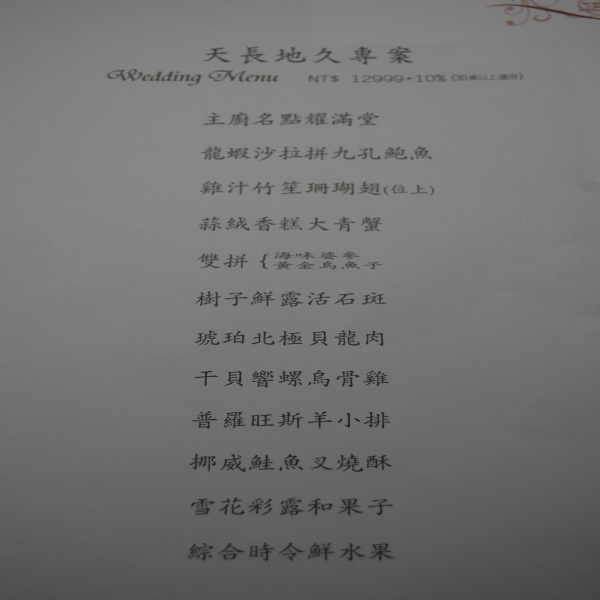 天長地久專案
Wedding Menu NT$ 12999+10% (30桌以上適用)
主廚名點耀滿堂
龍蝦沙拉拼九孔鮑魚
雞汁竹笙珊瑚翅(位上)
蒜絨香糕大青蟹
雙拼{海味婆參
黃金烏魚子
樹子鮮露活石斑
琥珀北極貝龍肉
干貝響螺烏骨雞
普羅旺斯羊小排
挪威鮭魚叉燒酥
雪花彩露和果子
綜合時令鮮水果